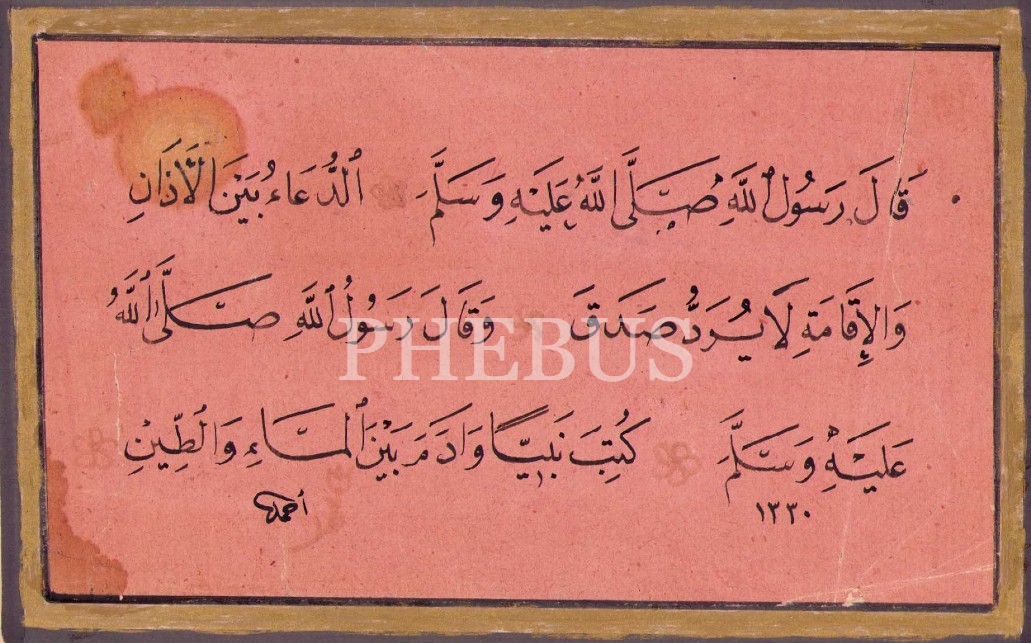 قَالَ رَسُولُ اللَّهِ صَلَّى اللَّهُ عَلَيْهِ وَسَلَّمَ الدُّعَاءُ بَيْنَ الْأَذَانِ
وَالْإِقَامَةِ لَا يُرَدُّ صَدَقَ وَقَالَ رَسُولُ اللَّهِ صَلَّى اللَّهُ
PHEBUS
عَلَيْهِ وَسَلَّمَ كُتِبَ نَبِيًّا وَادَمَ بَيْنَ الْمَاءِ وَالطِّينِ
١٣٣٠ أحمد